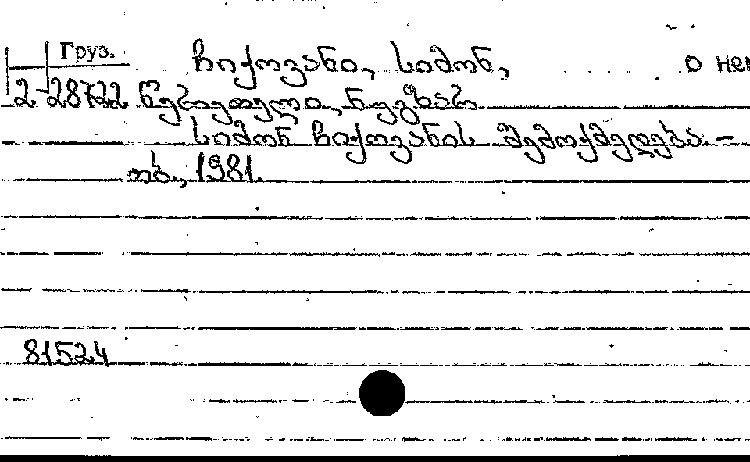 Груз. ჩიქოვანი, სიმონ, о нем
2-28722 წერეთელი, ნუგზარ.
სიმონ ჩიქოვანის შემოქმედება. –
თბ., 1981.
81524